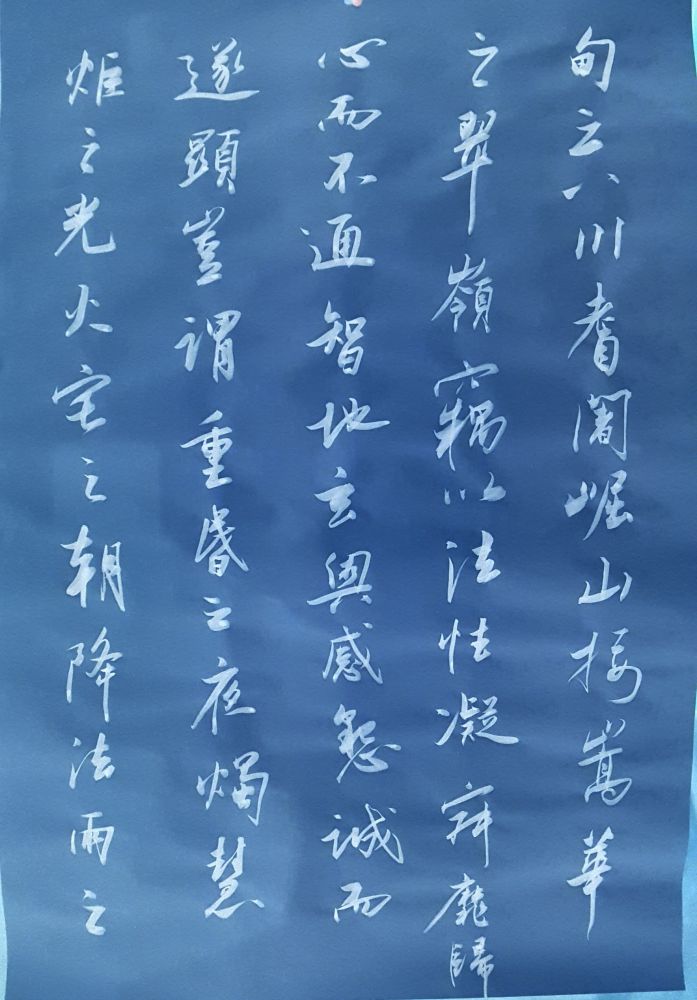 甸之八川耆闍崛山接嵩華
之翠嶺竊以法性凝寂靡歸
心而不通智地玄奧感懇誠而
遂顯豈謂重昬之夜燭慧
炬之光火宅之朝降法雨之